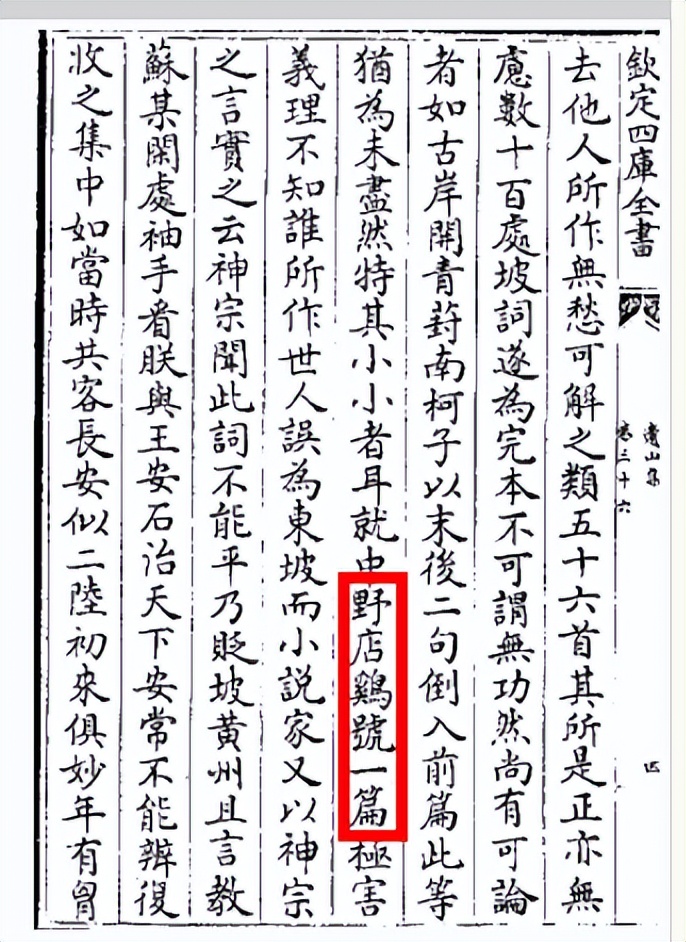 欽定四庫全書
遺山集
卷三十六
四
去他人所作無愁可解之類五十六首其所是正亦無
慮數十百處坡詞遂為完本不可謂無功然尚有可論
者如古岸開青葑南柯子以末後二句倒入前篇此等
猶為未盡然特其小小者耳就中野店鷄號一篇極害
義理不知誰所作世人誤為東坡而小説家又以神宗
之言實之云神宗聞此詞不能平乃貶坡黄州且言教
蘇某閑處袖手看朕與王安石治天下安常不能辨復
收之集中如當時共客長安似二陸初来俱妙年有胷